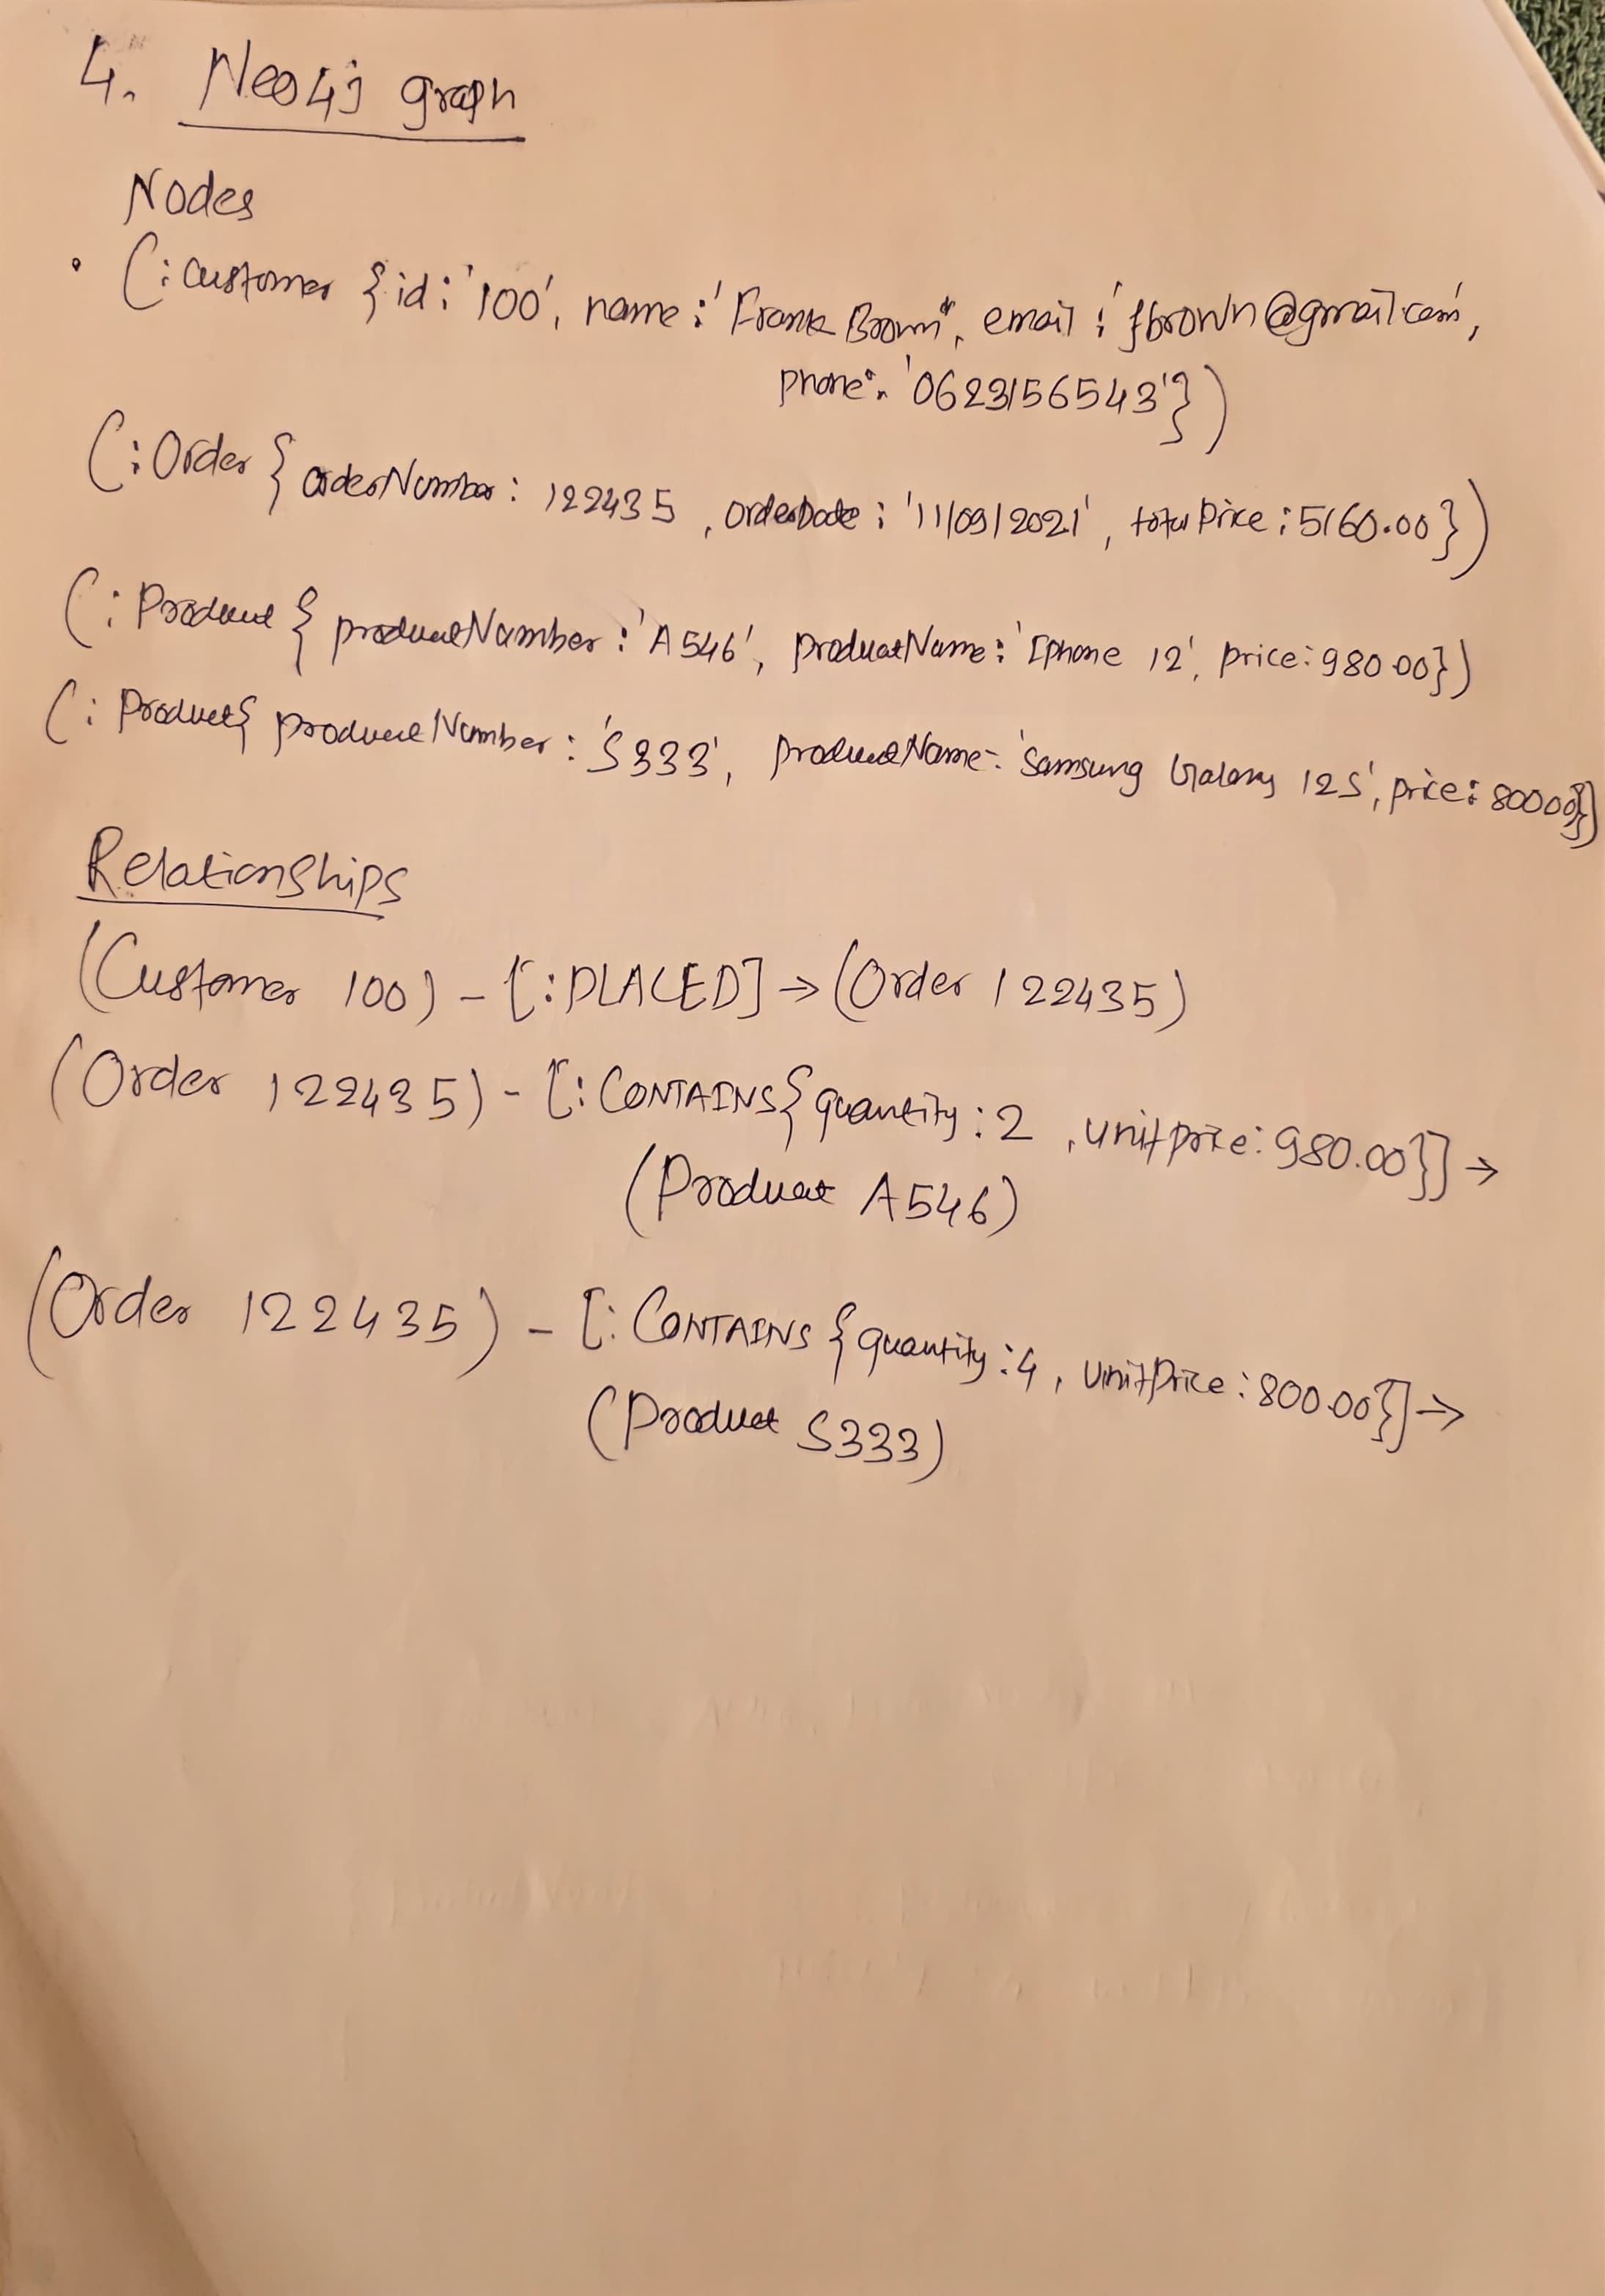 4. Neo4j graph
Nodes
• (:Customer {id:'100', name:'Frank Brown', email:'fbrown@gmail.com',
phone: '0623156543'})
(:Order {orderNumber: 122435, orderDate: '11/09/2021', totalPrice: 5160.00})
(:Product {productNumber:'A546', productName:'Iphone 12', price:980.00})
(:Product{productNumber:'S333', productName: 'Samsung Galaxy 12S', price: 800.00})
Relationships
(Customer 100) - [:PLACED] → (Order 122435)
(Order 122435) - [:CONTAINS{quantity:2, unitprice:980.00}] →
(Product A546)
(Order 122435) - [:CONTAINS {quantity:4, unitPrice:800.00}] →
(Product S333)